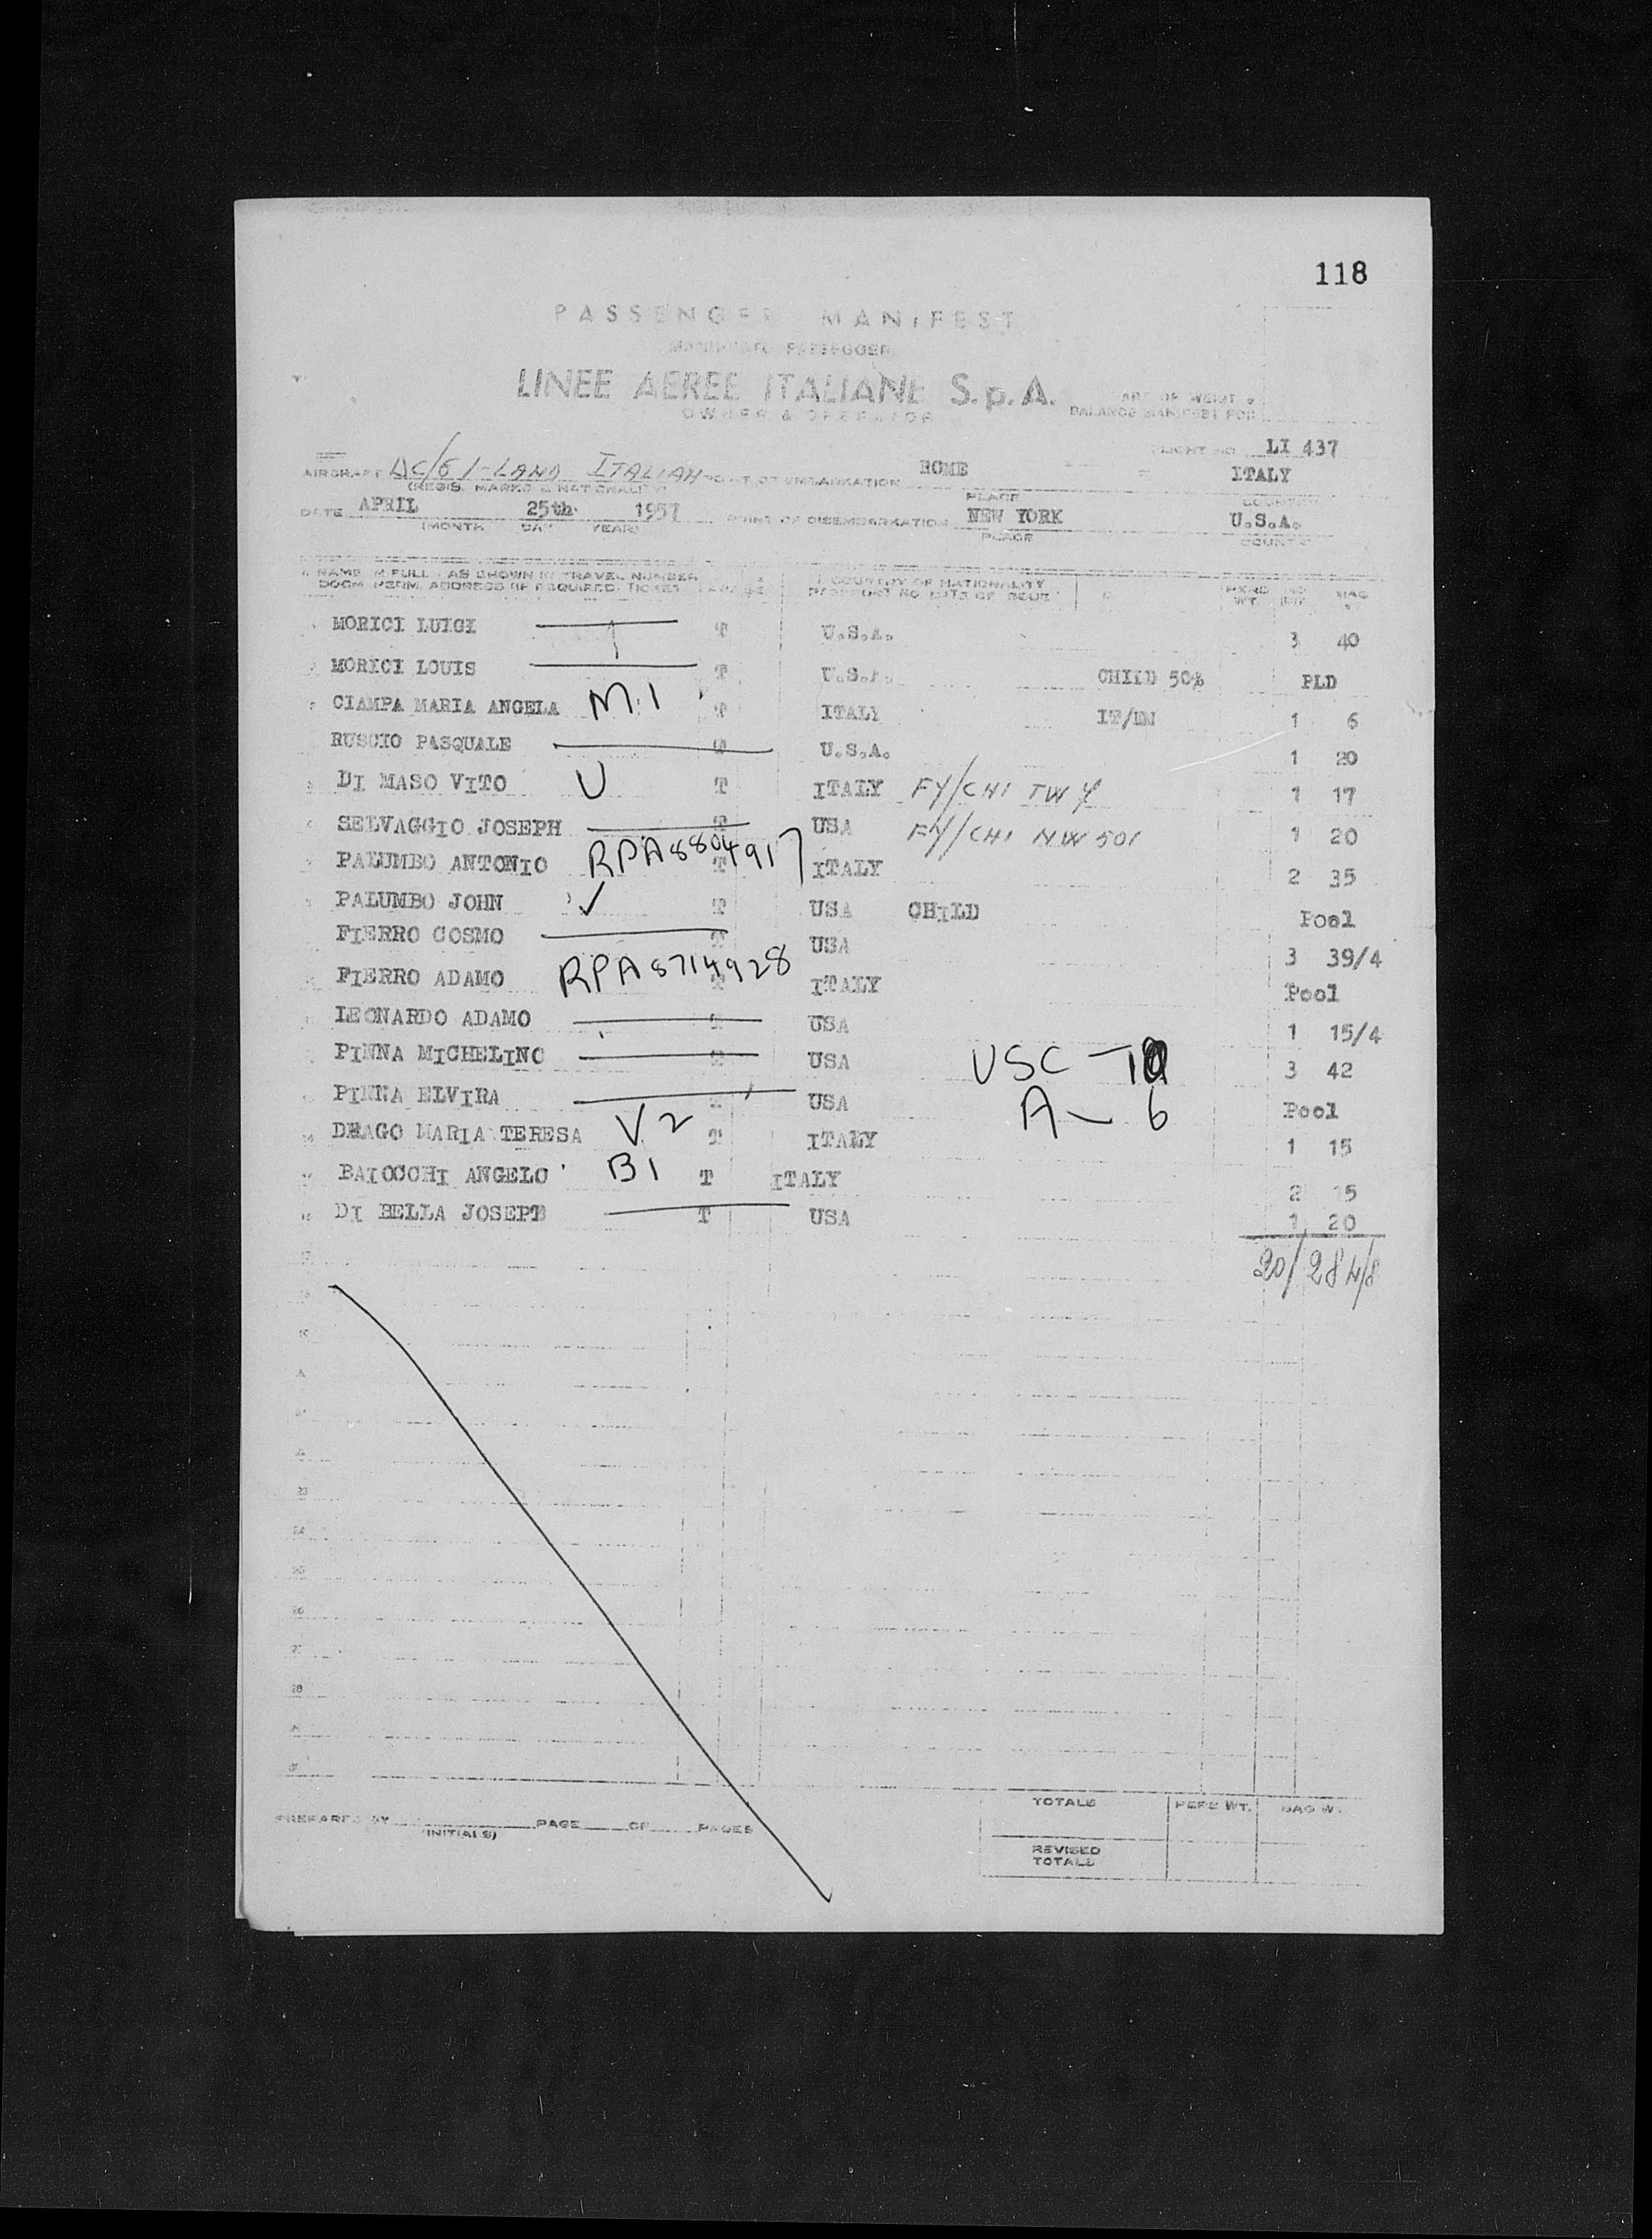 118
PASSENGER MANIFEST
MANIFESTO PASSEGGERI
LINEE AEREE ITALIANE S.p.A.
OWNER & OPERATOR
BALANCE MANIFEST FOR
FLIGHT NO LI 437
AIRCRAFT DC/6 I-LAND ITALIAN POINT OF EMBARKATION ROME ITALY
(REGIS. MARKS & NATIONALITY) PLACE COUNTRY
DATE APRIL 25th 1957 POINT OF DISEMBARKATION NEW YORK U.S.A.
(MONTH DAY YEAR) PLACE COUNTRY
NAME IN FULL AS SHOWN IN TRAVEL NUMBER COUNTRY OF NATIONALITY
DOCM PERM. ADDRESS (IF REQUIRED) TICKET PASSPORT NO. DATE OF ISSUE WT.
MORICI LUIGI T U.S.A. 3 40
MORICI LOUIS T U.S.A. CHILD 50% PLD
CIAMPA MARIA ANGELA M.1 T ITALY IT/EM 1 6
RUSCIO PASQUALE T U.S.A. 1 20
DI MASO VITO U T ITALY FY/CHI TW 1 17
SELVAGGIO JOSEPH T USA FY/CHI NW 501 1 20
PALUMBO ANTONIO RPA8804917 T ITALY 2 35
PALUMBO JOHN ✓ T USA CHILD Pool
FIERRO COSMO T USA 3 39/4
FIERRO ADAMO RPA8714928 T ITALY Pool
LEONARDO ADAMO T USA 1 15/4
PINNA MICHELINO T USA USC — 3 42
PINNA ELVIRA T USA A — 6 Pool
DRAGO MARIA TERESA V2 T ITALY 1 15
BAIOCCHI ANGELO B1 T ITALY 2 15
DI BELLA JOSEPH T USA 1 20
20/284/8
23
26
28
PREPARED BY PAGE OF PAGES
(INITIALS)
TOTALS BAG WT.
REVISED
TOTALS